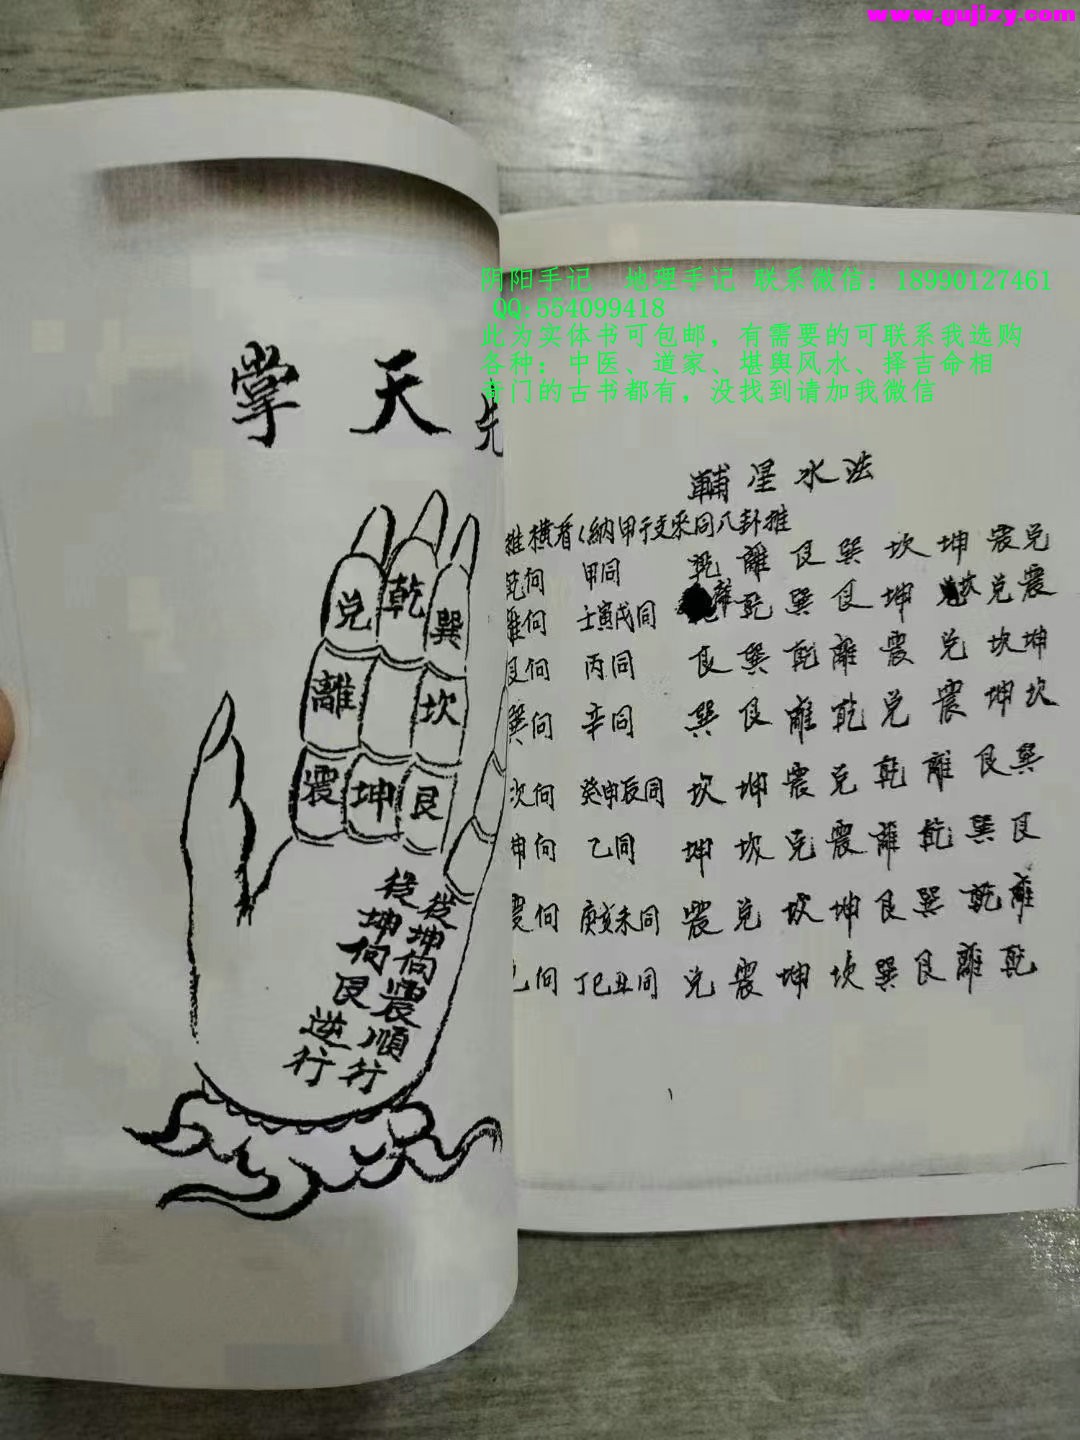 www.gujizy.com
阴阳手记 地理手记 联系微信：18990127461
QQ:554099418
此为实体书可包邮，有需要的可联系我选购
各种：中医、道家、堪舆风水、择吉命相
奇门的古书都有，没找到请加我微信
先天掌
兑 乾 巽
離 坎
震 坤 艮
從坤向震順行
從坤向艮逆行
輔星水法
推橫看納甲干支來同八卦推
乾向 甲同 乾離艮巽坎坤震兑
離向 壬寅戌同 離乾巽艮坤坎兑震
艮向 丙同 艮巽乾離震兑坎坤
巽向 辛同 巽艮離乾兑震坤坎
坎向 癸申辰同 坎坤震兑乾離艮巽
坤向 乙同 坤坎兑震離乾巽艮
震向 庚亥未同 震兑坎坤艮巽乾離
兑向 丁巳丑同 兑震坤坎巽艮離乾